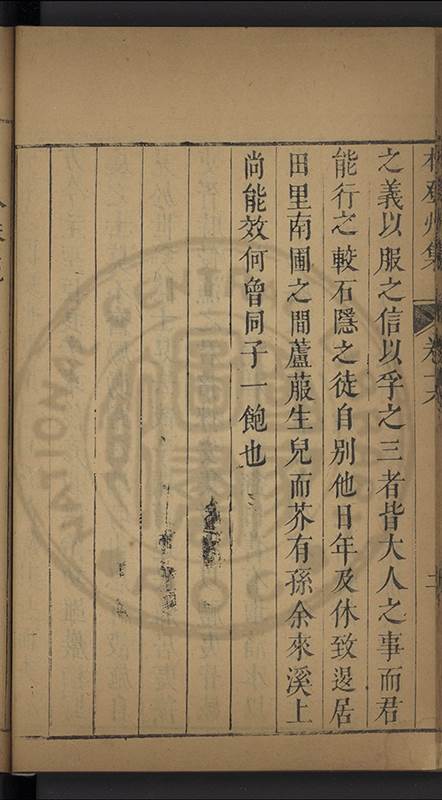 之義以服之信以孚之三者皆大人之事而君
能行之較石隱之徒自別他日年及休致退居
田里南圃之間蘆菔生兒而芥有孫余來溪上
尚能效何曾同子一飽也